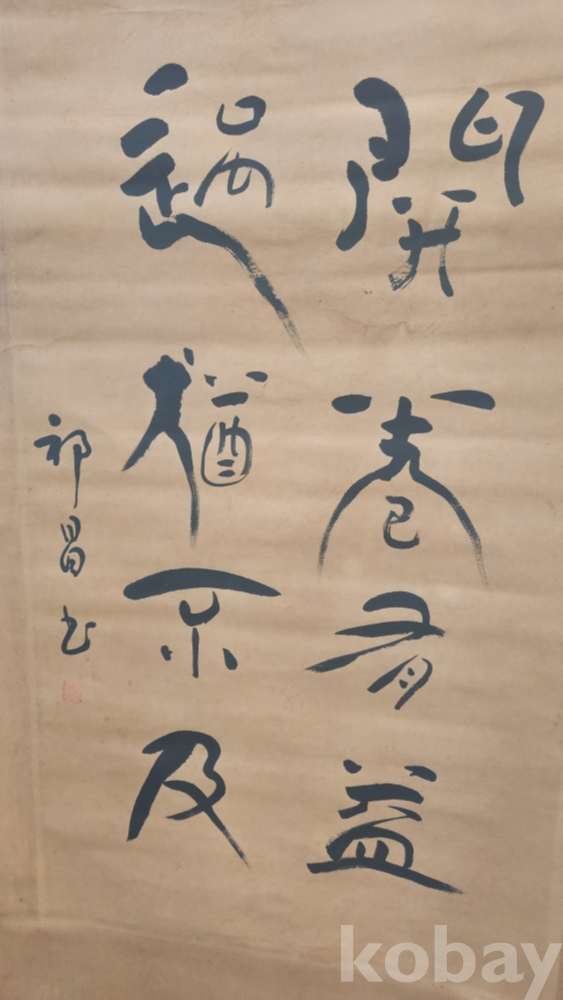 開卷有益
過猶不及
祁昌书
kobay